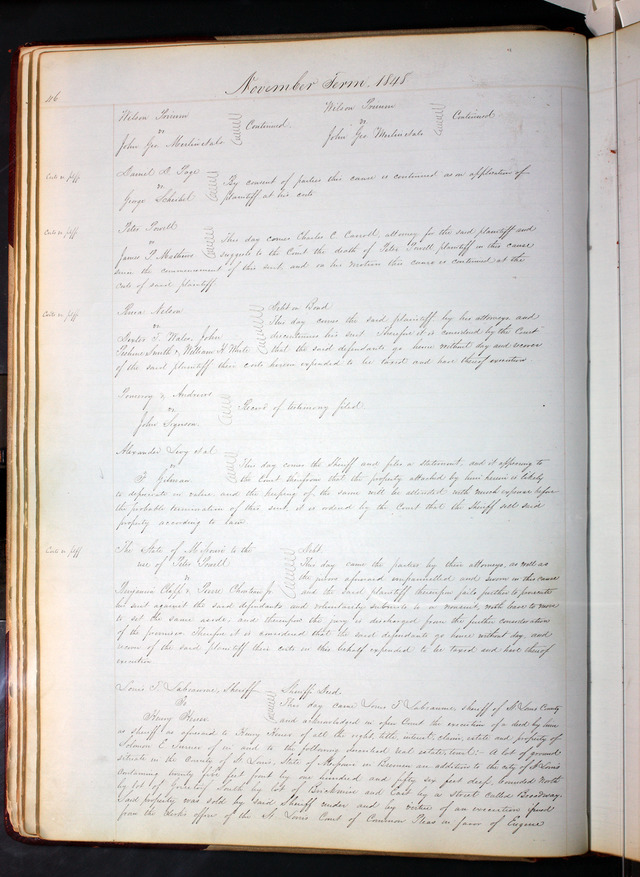 46
November Term. 1848
Wilson Primm
vs
John Geo.
Continued
Wilson Primm
vs
John Geo.
Continued
Costs vs plff.
Daniel D. Page
vs.
George Scheidel
By consent of parties this cause is continued as on application of
plaintiff at his costs
Costs vs plff.
Peter Powell
vs
James P. Mathews
This day comes Charles C. Carroll attorney for the said plaintiff and
suggests to the Court the death of Peter Powell plaintiff in this cause
since the commencement of this suit, and on his motion this cause is continued at the
costs of said plaintiff
Costs vs plff.
Nelson
vs
John
Smith & William H. White
Debt on Bond
This day comes the said plaintiff by his attorneys and
discontinues his suit. Therefore it is considered by the Court
that the said defendants go hence without day and recover
of the said plaintiff their costs herein expended to be taxed and have thereof execution
Pomeroy & Andrews
vs.
John Simpson.
Record of testimony filed
Alexander Levy et al
vs
F. Gilman.
This day comes the Sheriff and files a statement, and it appearing to
the Court therefrom that the property attached by him herein is likely
to depreciate in value and the keeping of the same will be attended with much expense before
the probable termination of this suit, it is ordered by the Court that the Sheriff sell said
property according to law
Costs vs plff
The State of Missouri to the
use of Peter Powell
vs
Benjamin Clapp & Pierre Chouteau Jr.
Debt.
This day came the parties by their attorneys, as well as
the jurors aforesaid empannelled and sworn in this cause
and the said plaintiff thereupon fails further to prosecute
his suit against the said defendants and voluntarily submits to a nonsuit, with leave to move
to set the same aside, and thereupon the jury is discharged from the further consideration
of the premises. Therefore it is considered that the said defendants go hence without day and
recover of the said plaintiff their costs in this behalf expended to be taxed and have thereof
execution
Louis T. Labeaume, Sheriff
To
Henry
Sheriffs Deed.
This day came Louis T. Labeaume, sheriff of St. Louis County
and acknowledged in open Court the execution of a deed by him
as sheriff as aforesaid to Henry of all the right, title, interest, claim, estate and property of
Solomon E. of in and to the following described real estate, to wit: A lot of ground
situate in the County of St. Louis, State of Missouri in Bremen an addition to the city of St. Louis
containing twenty five feet front by one hundred and fifty six feet deep, bounded North
by lot of South by lot of and East by a street called Broadway.
Said property was sold by said Sheriff under and by virtue of an execution issued
from the Clerks office of the St. Louis Court of Common Pleas in favor of Eugene